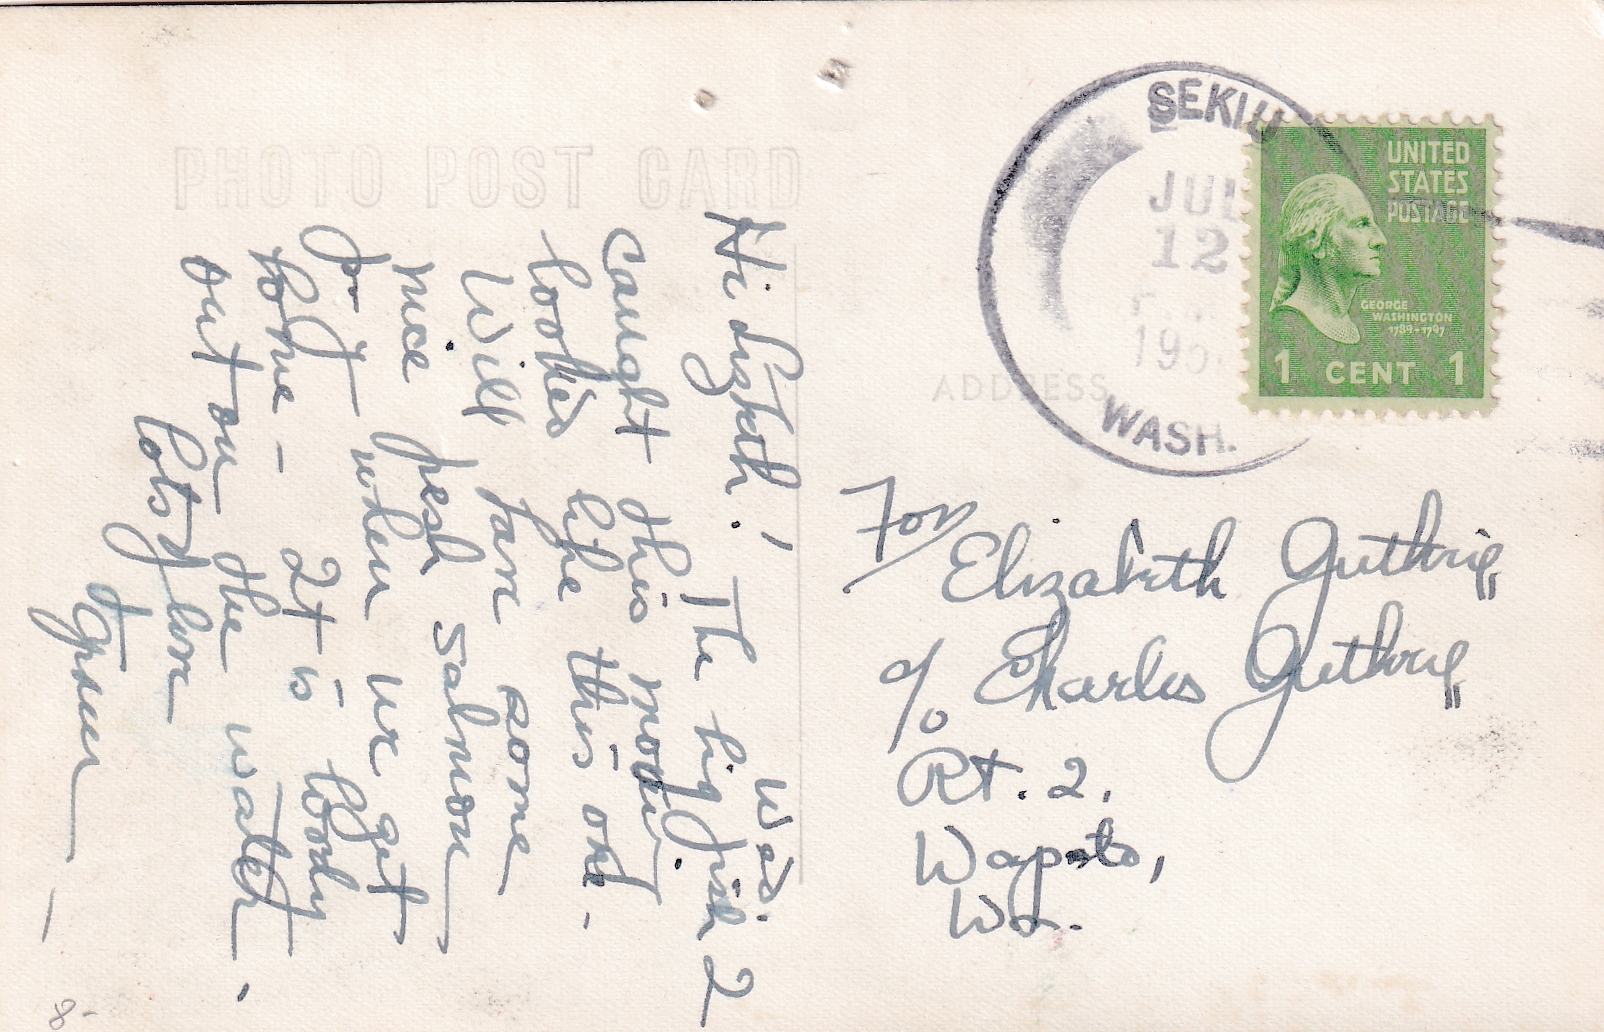 PHOTO POST CARD
SEKIU
JUL
12
WASH.
UNITED
STATES
POSTAGE
GEORGE
WASHINGTON
1789-1797
1 CENT 1
ADDRESS
For
Elizabeth Guthrie
c/o Charles Guthrie
Rt. 2,
Wapato,
Wa.
Wed.
Hi ! The big fish I
caught this morn.
looked like this one -
Will fan some
nice fresh salmon
for when we get
home - It is lovely
out on the water.
Lots of love
8-